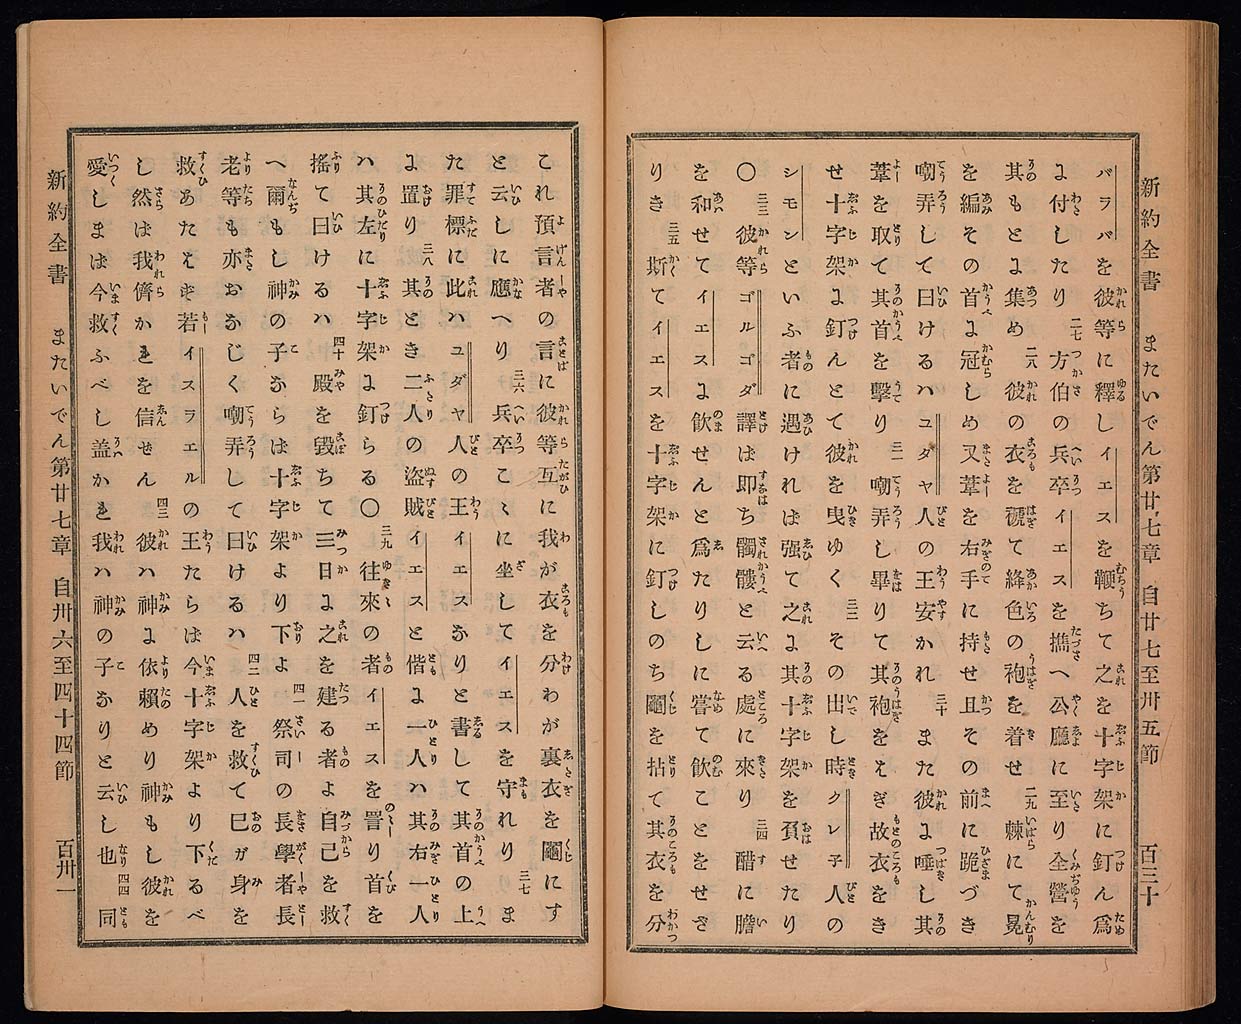 新約全書　またいでん第廿七章　自廿七至卅五節　百三十
バラバを彼等に釋しイエスを鞭ちて之を十字架に釘ん爲
に付したり 二七 方伯の兵卒イエスを携へ公廳に至り全營を
其もとに集め 二八 彼の衣を褫て絳色の袍を着せ 二九 棘にて冕
を編その首に冠しめ又葦を右手に持せ且その前に跪づき
嘲弄して曰けるハユダヤ人の王安かれ 三十 また彼に唾し其
葦を取て其首を擊り 三一 嘲弄し畢りて其袍をはぎ故衣をき
せ十字架に釘んとて彼を曳ゆく 三二 その出し時クレ子人の
シモンといふ者に遇ければ强て之に其十字架を負せたり
〇 三三 彼等ゴルゴダ譯ば即ち髑髏と云る處に來り 三四 醋に膽
を和せてイエスに飮せんと爲たりしに嘗て飮ことをせざ
りき 三五 斯てイエスを十字架に釘しのち鬮を拈て其衣を分
これ預言者の言に彼等互に我が衣を分わが裏衣を鬮にす
と云しに應へり 三六 兵卒こゝに坐してイエスを守れり 三七 ま
た罪標に此ハユダヤ人の王イエスなりと書して其首の上
に置り 三八 其とき二人の盜賊イエスと偕に一人ハ其右一人
ハ其左に十字架に釘らる〇 三九 往來の者イエスを詈り首を
搖て曰けるハ 四十 殿を毀ちて三日に之を建る者よ自己を救
へ爾もし神の子ならば十字架より下よ 四一 祭司の長學者長
老等も亦おなじく嘲弄して曰けるハ 四二 人を救て己が身を
救あたはず若イスラエルの王たらば今十字架より下るべ
し然ば我儕かれを信ぜん 四三 彼ハ神に依賴めり神もし彼を
愛しまば今救ふべし盖かれ我ハ神の子なりと云し也 四四 同
新約全書　またいでん第廿七章　自卅六至四十四節　百卅一